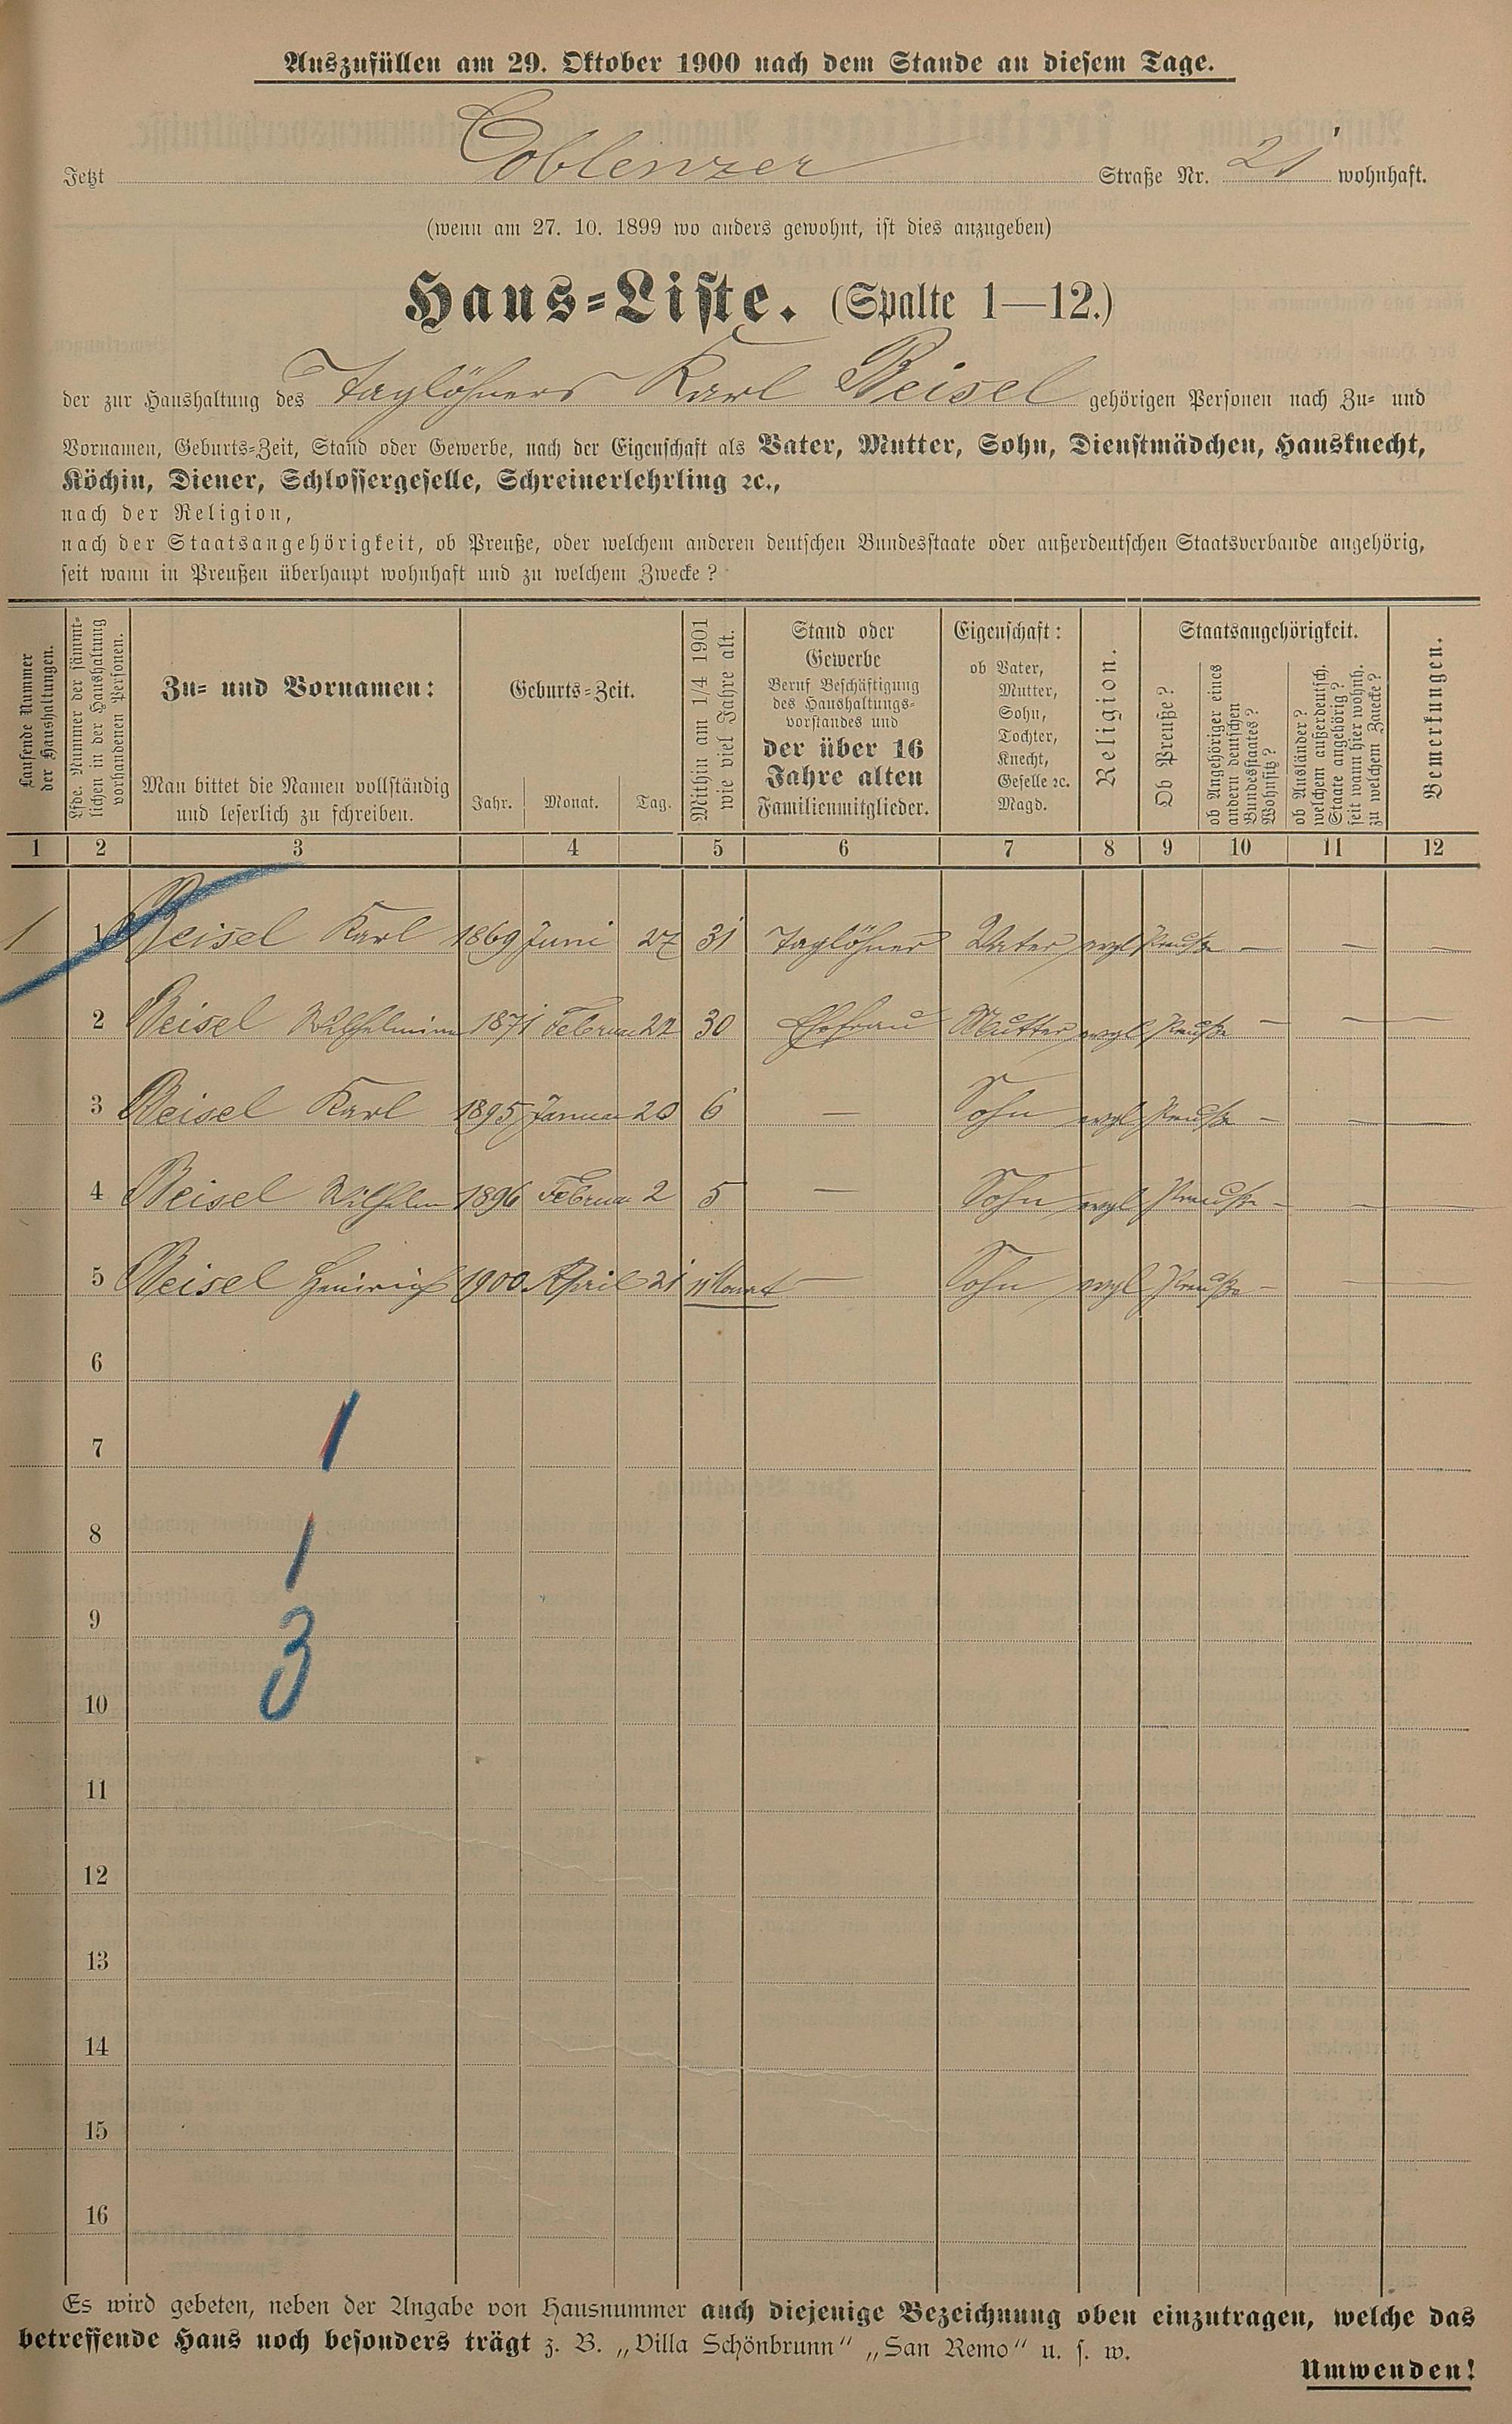 Auszufüllen am 29. Oktober 1900 nach dem Stande an diesem Tage.
Jetzt Coblenzer Straße Nr. 21 wohnhaft.
(wenn am 27. 10. 1899 wo anders gewohnt, ist dies anzugeben)
Haus-Liste. (Spalte 1—12.)
der zur Haushaltung des Taglöhners Karl Beisel gehörigen Personen nach Zu- und
Vornamen, Geburts-Zeit, Stand oder Gewerbe, nach der Eigenschaft als Vater, Mutter, Sohn, Dienstmädchen, Hausknecht,
Köchin, Diener, Schlossergeselle, Schreinerlehrling ꝛc.,
nach der Religion,
nach der Staatsangehörigkeit, ob Preuße, oder welchem anderen deutschen Bundesstaate oder außerdeutschen Staatsverbande angehörig,
seit wann in Preußen überhaupt wohnhaft und zu welchem Zwecke?
Laufende Nummer
der Haushaltungen.
Lfde. Nummer der sämmt-
lichen in der Haushaltung
vorhandenen Personen.
Zu- und Vornamen:
Man bittet die Namen vollständig
und leserlich zu schreiben.
Geburts-Zeit.
Jahr. Monat. Tag.
Mithin am 1/4 1901
wie viel Jahre alt.
Stand oder
Gewerbe
Beruf Beschäftigung
des Haushaltungs-
vorstandes und
der über 16
Jahre alten
Familienmitglieder.
Eigenschaft:
ob Vater,
Mutter,
Sohn,
Tochter,
Knecht,
Geselle ꝛc.
Magd.
Religion.
Staatsangehörigkeit.
Ob Preuße?
ob Angehöriger eines
andern deutschen
Bundesstaates?
Wohnsitz?
ob Ausländer?
welchem außerdeutsch.
Staate angehörig?
seit wann hier wohnh.
zu welchem Zwecke?
Bemerkungen.
1 2 3 4 5 6 7 8 9 10 11 12
1 1 Beisel Karl 1869 Juni 27 31 Taglöhner Vater evgl Preuße — — —
2 Beisel Wilhelmine 1871 Februar 22 30 Ehefrau Mutter evgl Preuße — — —
3 Beisel Karl 1895 Januar 20 6 — Sohn evgl Preuße — — —
4 Beisel Wilhelm 1896 Februar 2 5 — Sohn evgl Preuße — — —
5 Beisel Heinrich 1900 April 21 11 Monat — Sohn evgl Preuße — — —
6
7 1
8 1
9 3
10
11
12
13
14
15
16
Es wird gebeten, neben der Angabe von Hausnummer auch diejenige Bezeichnung oben einzutragen, welche das
betreffende Haus noch besonders trägt z. B. „Villa Schönbrunn" „San Remo" u. s. w.
Umwenden!